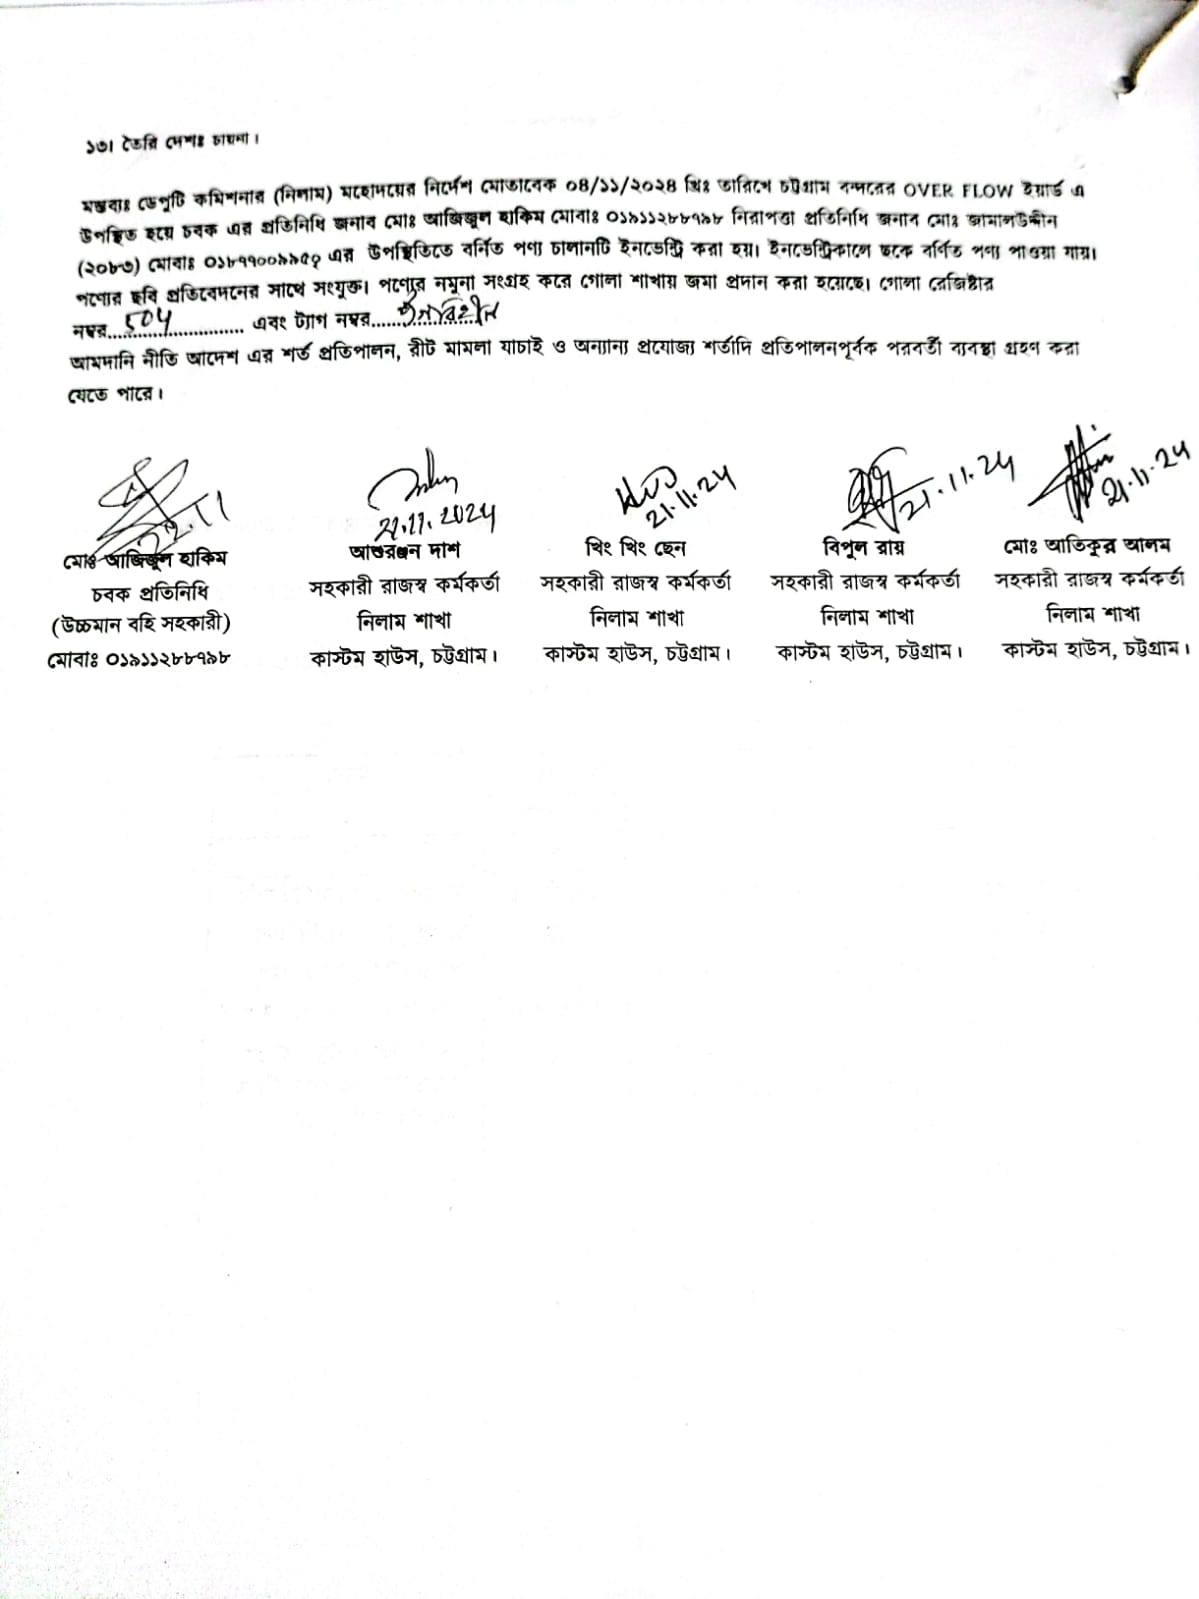 ১৩। তৈরি দেশঃ চায়না।
মন্তব্যঃ ডেপুটি কমিশনার (নিলাম) মহোদয়ের নির্দেশ মোতাবেক ০৪/১১/২০২৪ খ্রিঃ তারিখে চট্টগ্রাম বন্দরের OVER FLOW ইয়ার্ড এ
উপস্থিত হয়ে চবক এর প্রতিনিধি জনাব মোঃ আজিজুল হাকিম মোবাঃ ০১৯১১২৮৮৭৯৮ নিরাপত্তা প্রতিনিধি জনাব মোঃ জামালউদ্দীন
(২০৮৩) মোবাঃ এর উপস্থিতিতে বর্নিত পণ্য চালানটি ইনভেন্ট্রি করা হয়। ইনভেন্ট্রিকালে ছকে বর্ণিত পণ্য পাওয়া যায়।
পণ্যের ছবি প্রতিবেদনের সাথে সংযুক্ত। পণ্যের নমুনা সংগ্রহ করে গোলা শাখায় জমা প্রদান করা হয়েছে। গোলা রেজিষ্টার
নম্বর........................ এবং ট্যাগ নম্বর......................
আমদানি নীতি আদেশ এর শর্ত প্রতিপালন, রীট মামলা যাচাই ও অন্যান্য প্রযোজ্য শর্তাদি প্রতিপালনপূর্বক পরবর্তী ব্যবস্থা গ্রহণ করা
যেতে পারে।
21.11.2024 21.11.24 21.11.24 21.11.24
মোঃ আজিজুল হাকিম আশুরঞ্জন দাশ থিং থিং ছেন বিপুল রায় মোঃ আতিকুর আলম
চবক প্রতিনিধি সহকারী রাজস্ব কর্মকর্তা সহকারী রাজস্ব কর্মকর্তা সহকারী রাজস্ব কর্মকর্তা সহকারী রাজস্ব কর্মকর্তা
(উচ্চমান বহি সহকারী) নিলাম শাখা নিলাম শাখা নিলাম শাখা নিলাম শাখা
মোবাঃ ০১৯১১২৮৮৭৯৮ কাস্টম হাউস, চট্টগ্রাম। কাস্টম হাউস, চট্টগ্রাম। কাস্টম হাউস, চট্টগ্রাম। কাস্টম হাউস, চট্টগ্রাম।